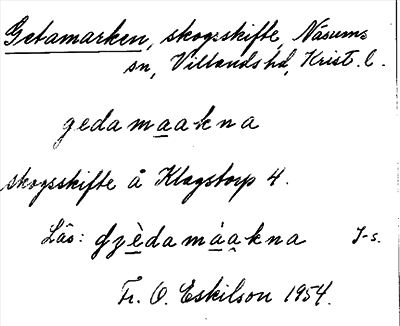 Getamarken, skogsskifte, Näsums
sn, Villands hd, Krist. l.
gedamaakna
skogsskifte å Klagstorp 4.
Läs: gzèdamáakna J-s.
Fr. O. Eskilson 1954.